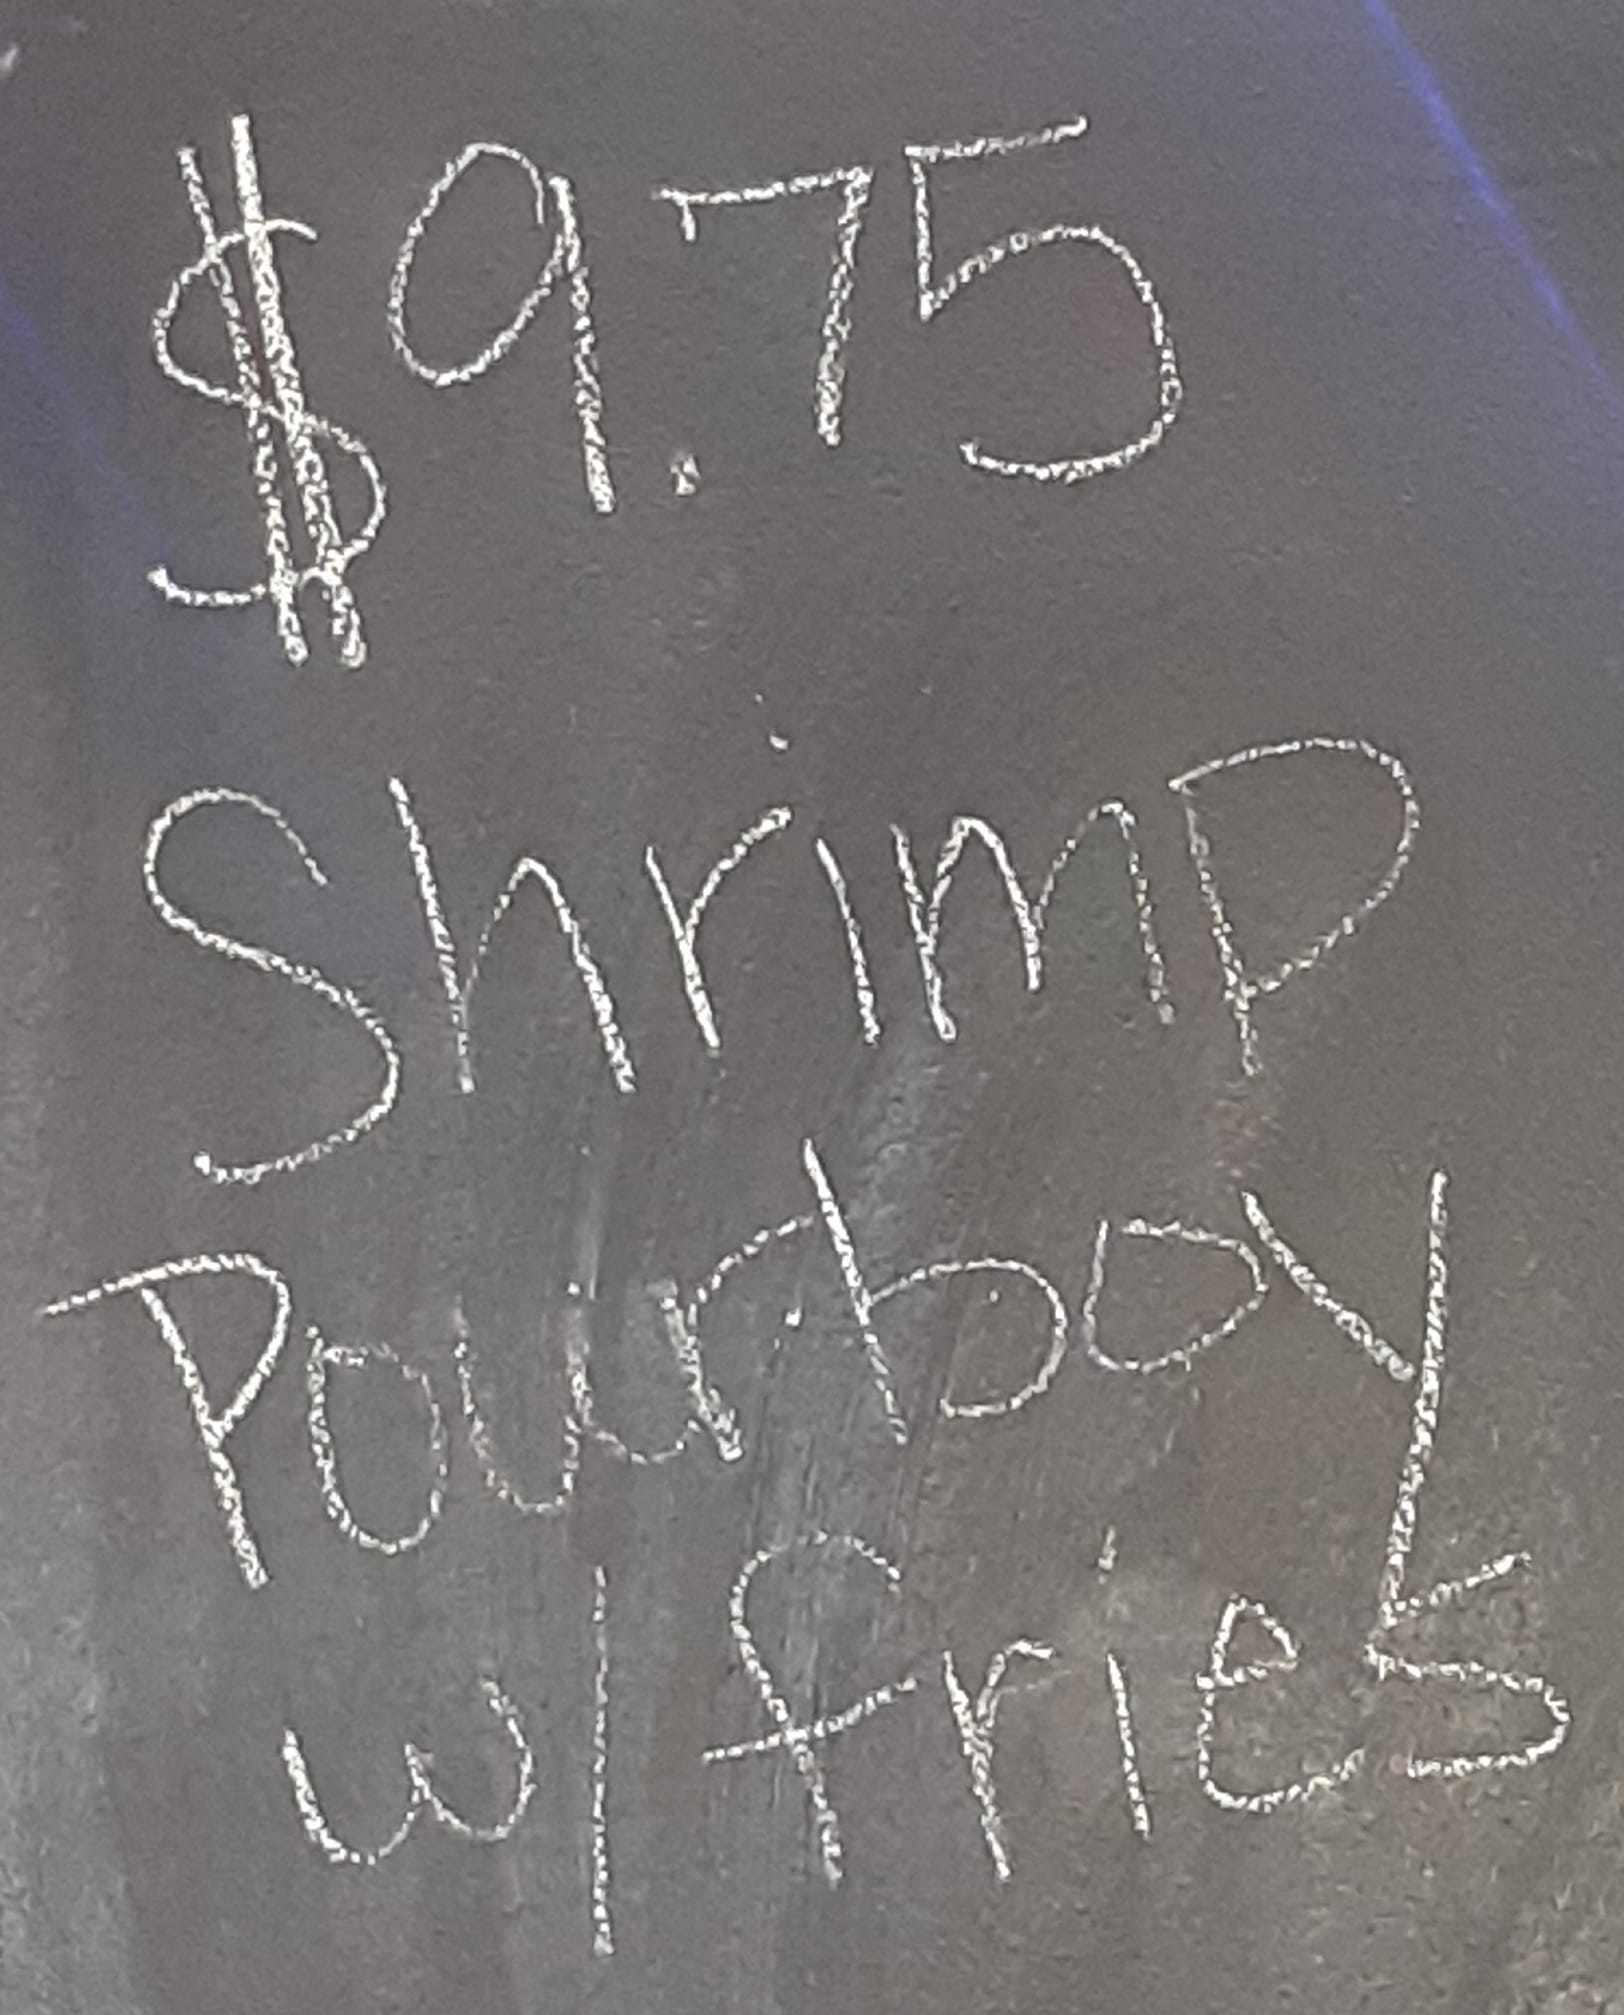 $9.75
Shrimp
Pourboy
w/fries